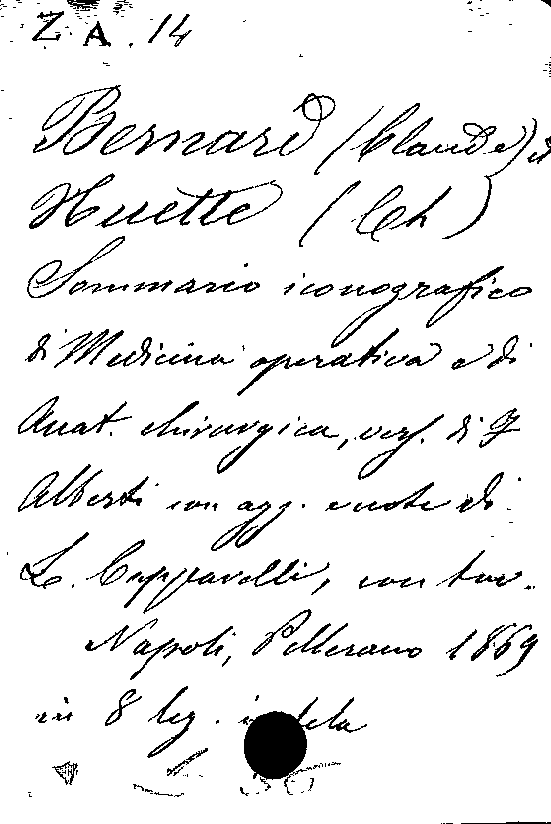 Z A. 14
Bernard (Claude) et
Huette (Ch)
Sommario iconografico
di Medicina operativa e di
Anat. chirurgica, vers. di F
Alberti con agg. e note di
L. Ceppavelli, con tav.
Napoli, Pellerano 1869
in 8 leg. in tela